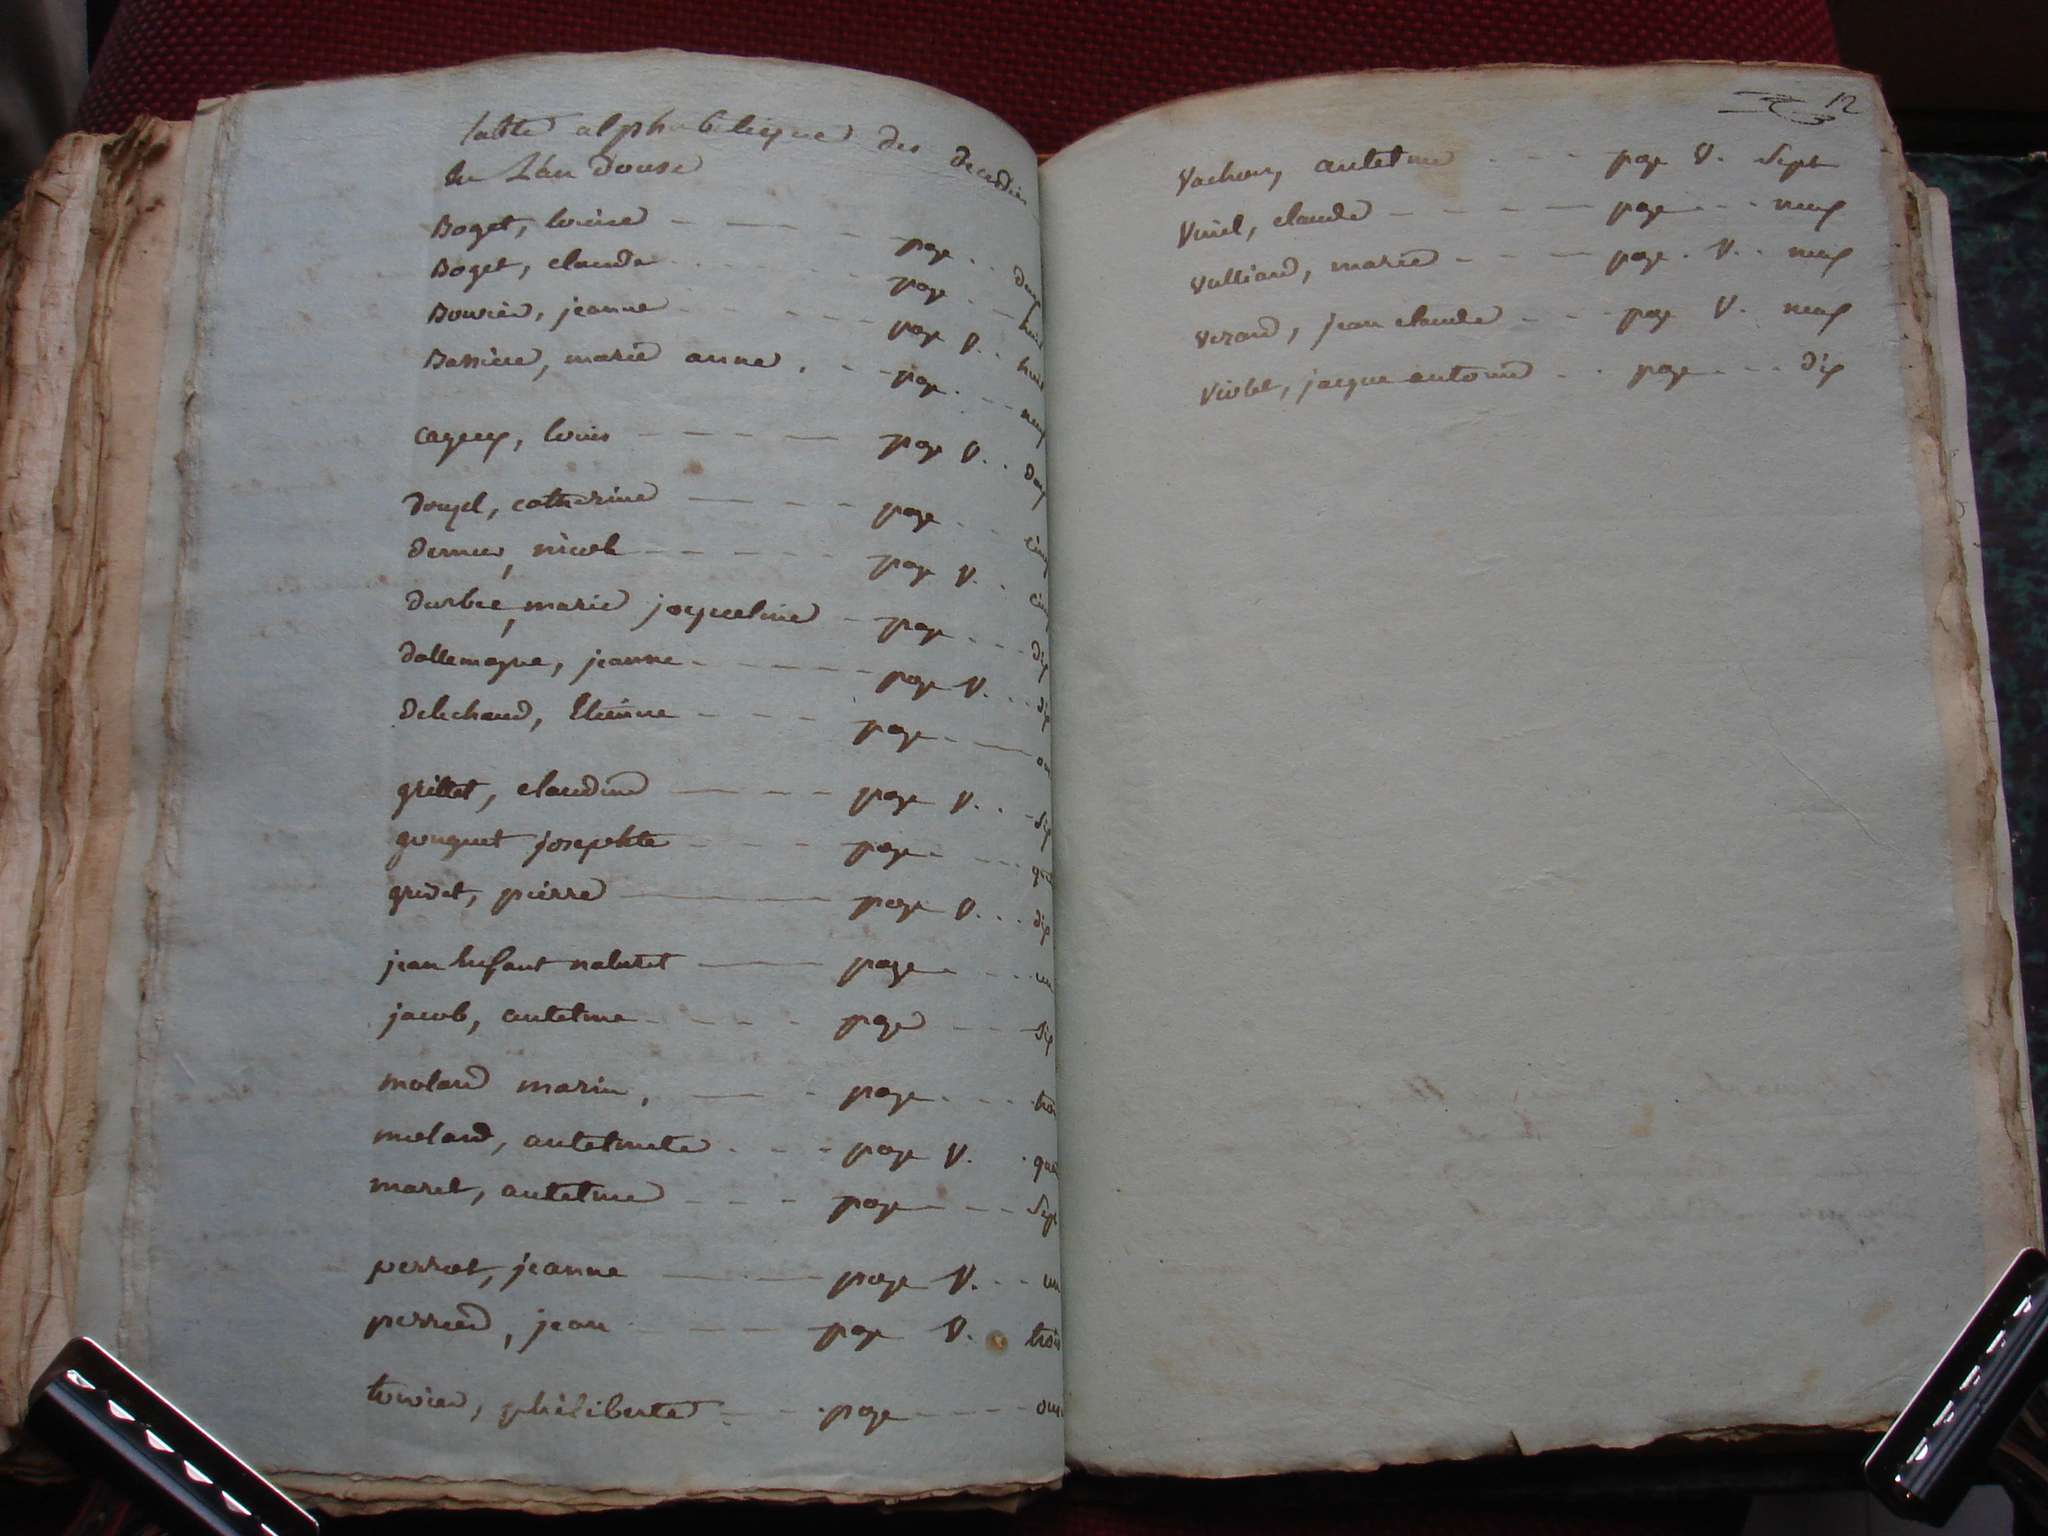 table alphabetique des decedés
en L'an Douse
Boget, louise page
Boget, claude page huit
Bouvier, jeanne page V. huit
Bassieu, marie anne page neuf
cageux, louis page V. deux
douzel, catherine page cinq
dernier, nicole page V. cinq
durbec, marie jacqueline page dix
dallemagne, jeanne page V. dix
delichaud, Etienne page
grillet, claudine page V. six
gouguet josephte page
gridet, pierre page V. dix
jean Enfant naturel page un
jacob, antelme page six
molard marin, page trois
molard, antelmete page V.
maret, antelme page sept
perrot, jeanne page V. un
perrier, jean page V. trois
tovier, philiberte page
12
Vachon, antelme page V. sept
Vinel, claude page neuf
Vulliard, marie page V. neuf
Verard, jean claude page V. neuf
Violet, jacque antoine page dix